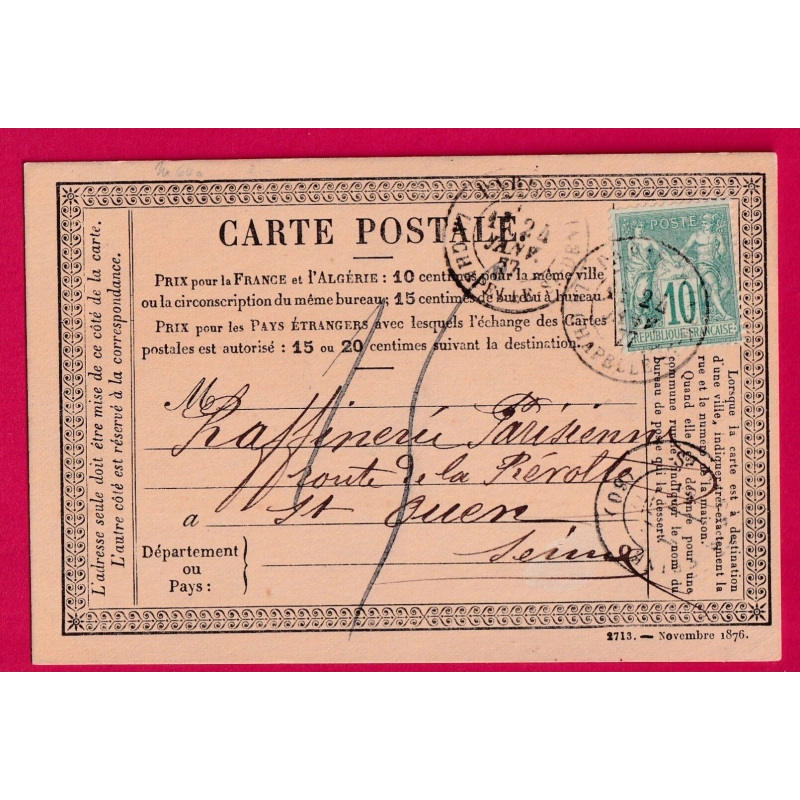 CARTE POSTALE
PRIX pour la FRANCE et l'ALGÉRIE : 10 centimes pour la même ville
ou la circonscription du même bureau; 15 centimes de bureau à bureau.
PRIX pour les PAYS ÉTRANGERS avec lesquels l'échange des Cartes
postales est autorisé : 15 ou 20 centimes suivant la destination.
POSTE
10
REPUBLIQUE FRANÇAISE
24
JANV.
CHAPELLE
M
Raffinerie Parisienne
route de la Révolte
à St Ouen
Seine
Département
ou
Pays :
L'adresse seule doit être mise de ce côté de la carte.
L'autre côté est réservé à la correspondance.
Lorsque la carte est à destination
d'une ville, indiquer très-exactement la
rue et le numéro de la maison.
Quand elle est destinée pour une
commune rurale, indiquer le nom du
bureau de poste qui la dessert.
(60)
2713. — Novembre 1876.